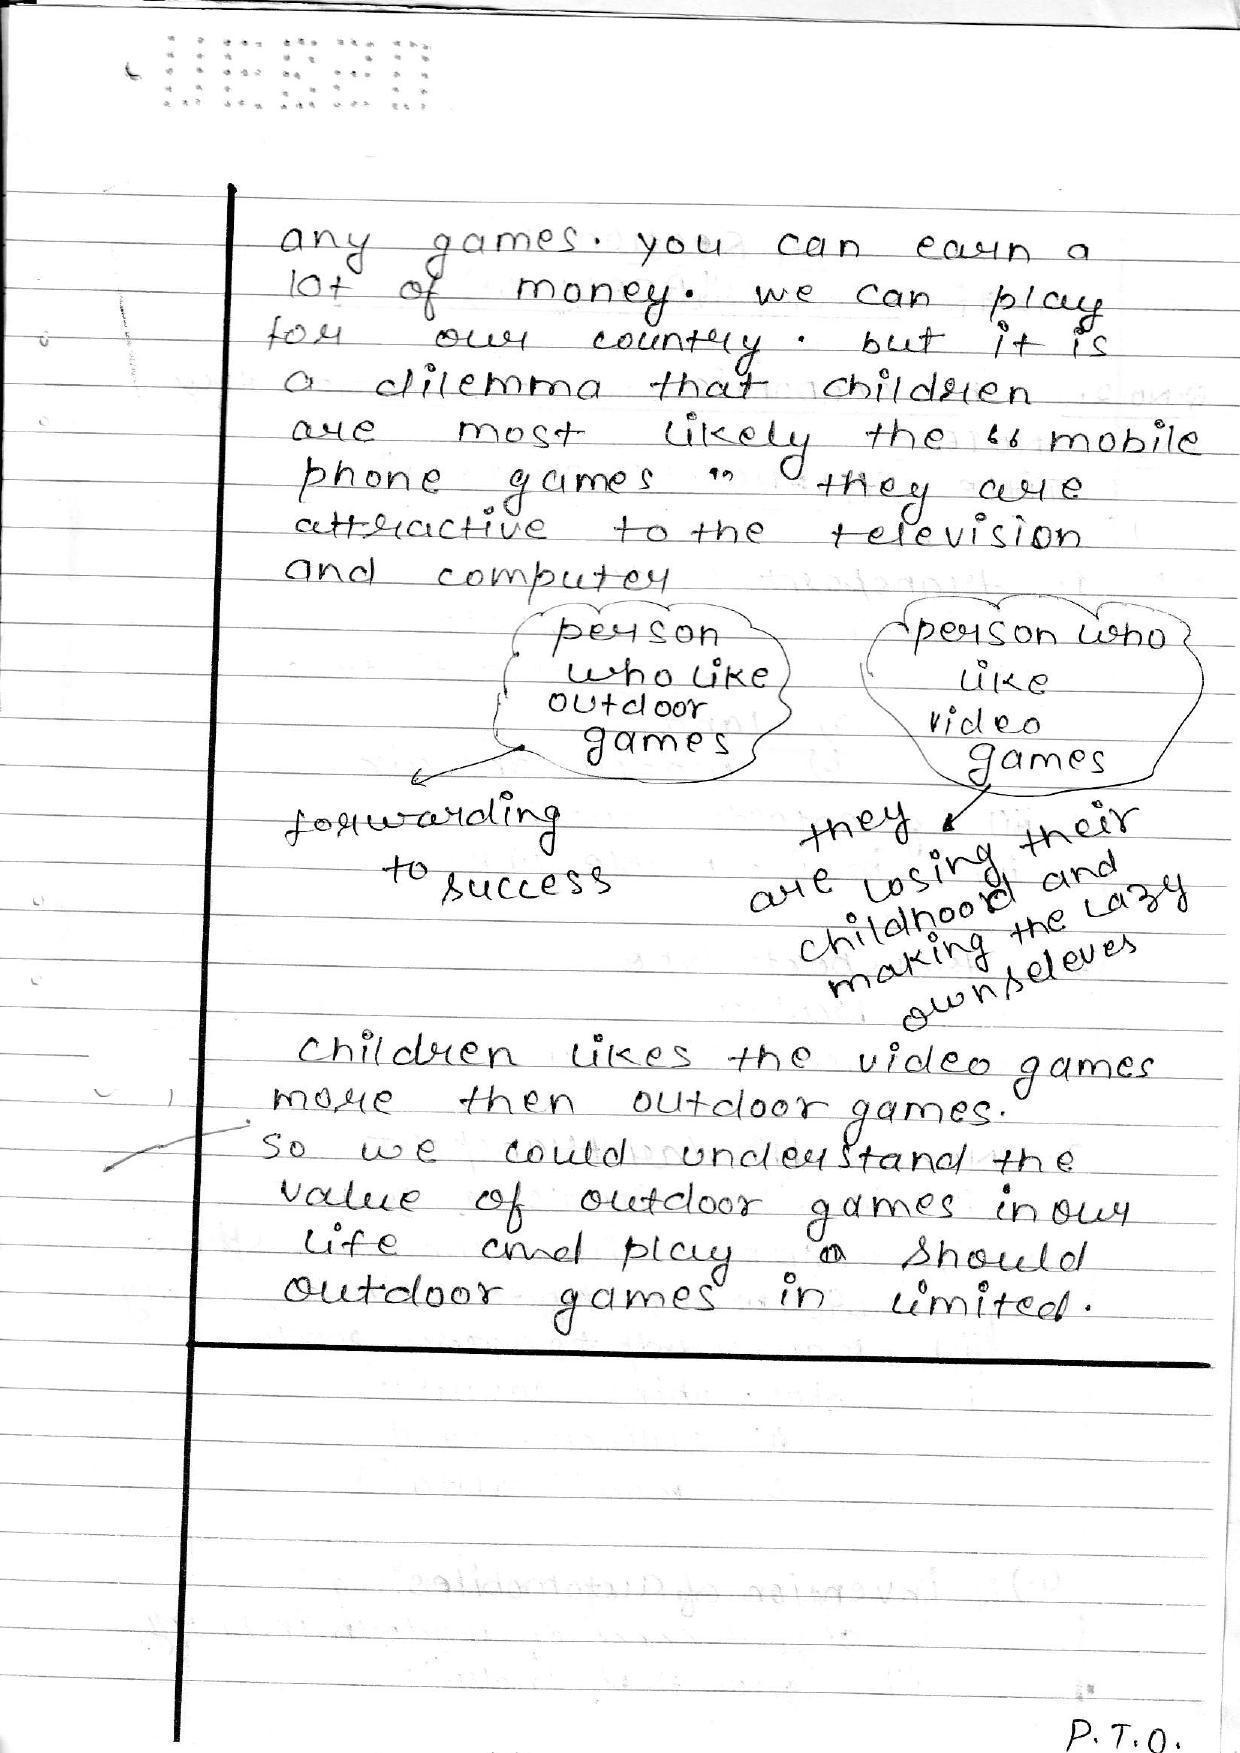 any games. you can earn a
lot of money. we can play
for our country. but it is
a dilemma that children
are most likely the "mobile
phone games" they are
attractive to the television
and computer
person
who like
outdoor
games
forwarding
to success
person who
like
video
games
they
are losing their
childhood and
making the lazy
ownseleves
children likes the video games
more then outdoor games.
so we could understand the
value of outdoor games in our
life and play should
outdoor games in limited.
P.T.O.